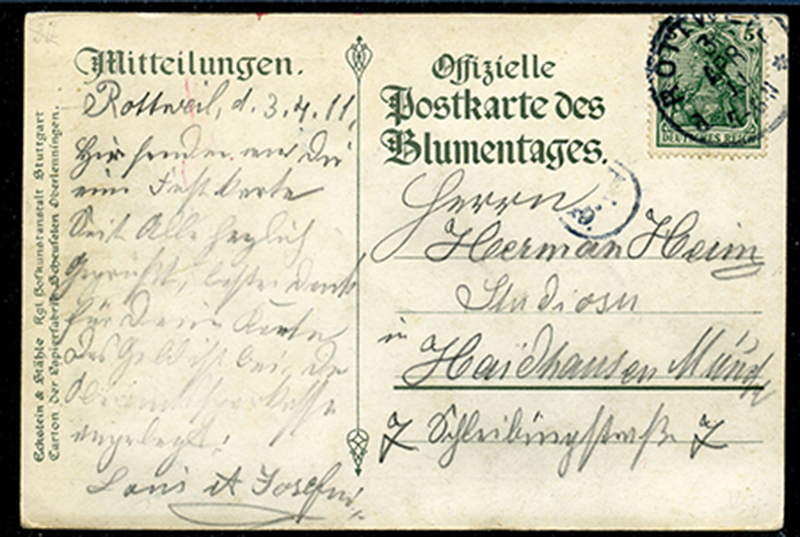 Mitteilungen.
Rottweil, d. 3.4.11.
Hier senden wir Dir
eine Festkarte
Seit Alle herzlich
Gegrüßt, besten Dank
für Deine Karte
Das Geld ist bei der
angelegt.
Loni et Josefine
Eckstein & Stähle Kgl. Hofkunstanstalt Stuttgart
Carton der Papierfabrik Scheufelen Oberlenningen.
Offizielle
Postkarte des
Blumentages.
ROTTWEIL
3 APR
DEUTSCHES REICH
Herrn
Herman Heim
Studiosu
in Haidhausen Münch
7 Schleibingstraße 7